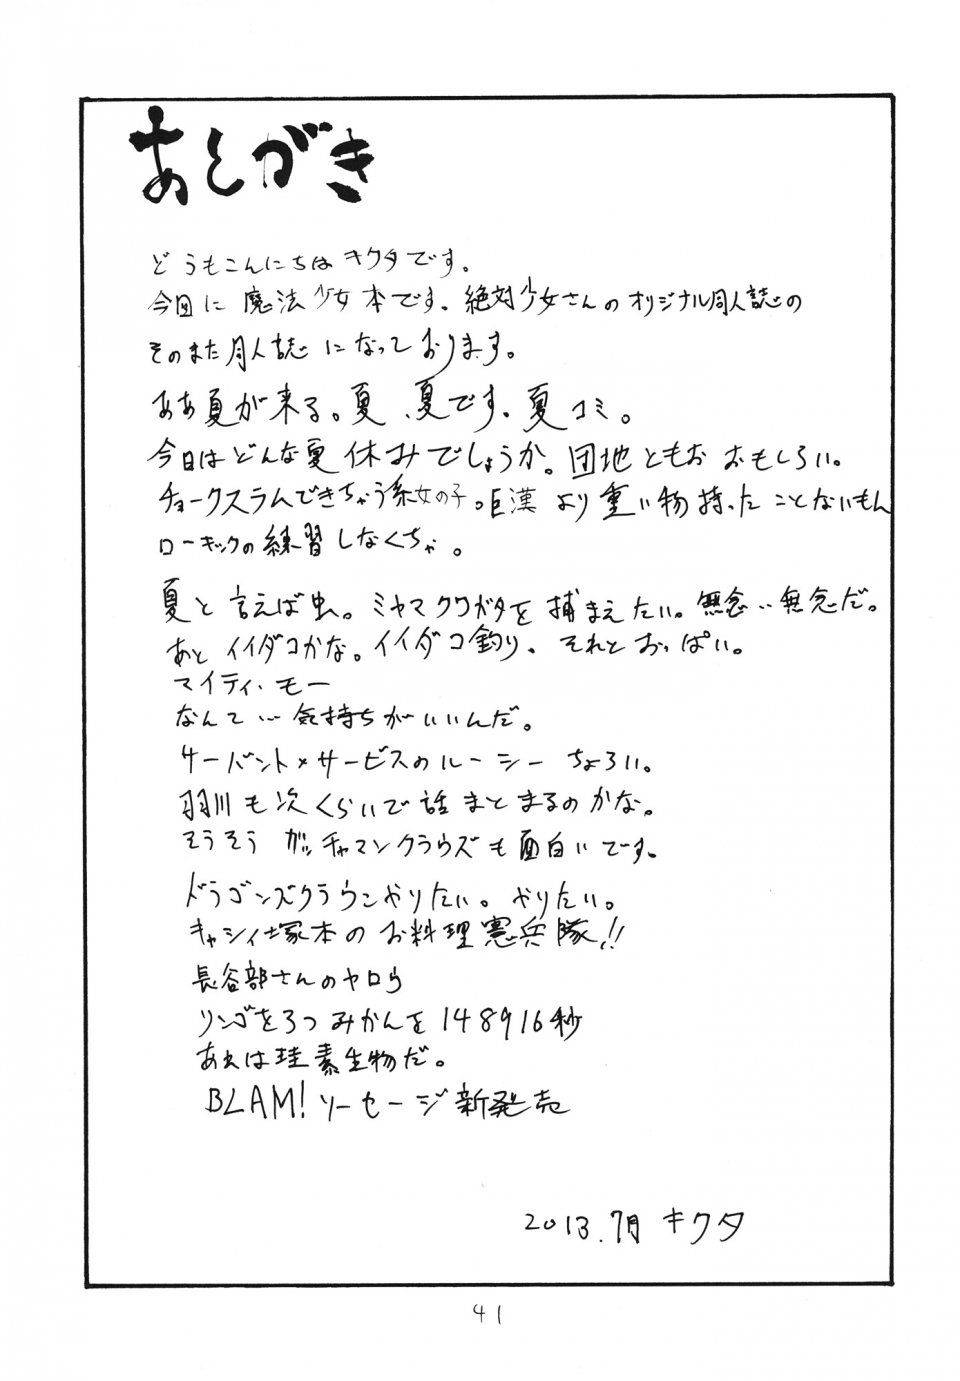 あとがき
どうもこんにちは キクタです。
今回は 魔法少女本です。絶対少女さんの オリジナル同人誌の
そのまた同人誌 になっております。
ああ夏が来る。夏、夏です、夏コミ。
今日はどんな夏休みでしょうか。団地ともお おもしろい。
チョークスラムできちゃう系女の子。巨漢 より重い物持ったことないもん
ローキックの練習しなくちゃ。
夏と言えば虫。ミヤマクワガタを捕まえたい。無念…無念だ。
あと イイダコかな。イイダコ釣り、それとおっぱい。
マイティ・モー
なんて…気持ちがいいんだ。
サーバント×サービスのルーシー ちょろい。
羽川も次くらいで話まとまるのかな。
そうそう ガッチャマンクラウズも面白いです。
ドラゴンズクラウンやりたい。やりたい。
キャシィ塚本のお料理憲兵隊!!
長谷部さんのヤロウ
リンゴを3つ みかんを148916秒
あれは珪素生物だ。
BLAM! ソーセージ新発売
2013.7月 キクタ
41